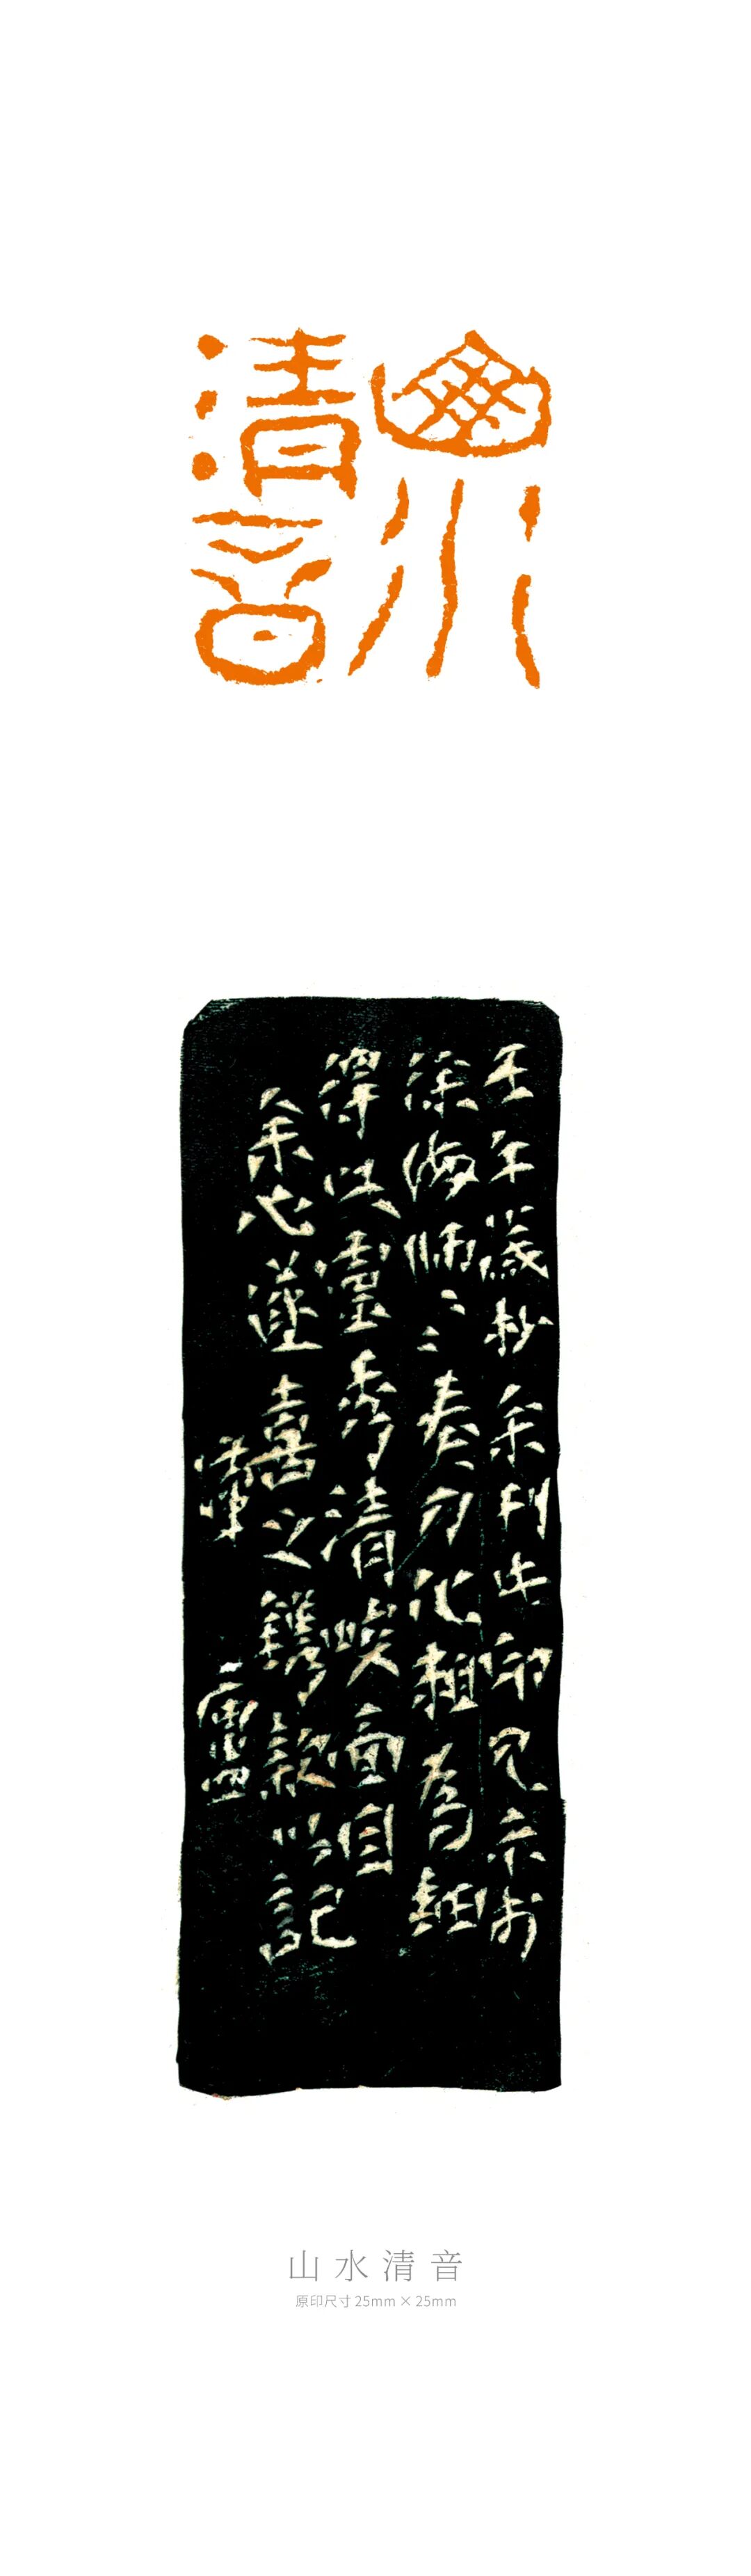 山水
清音
壬午歲杪余刊此印示於
徐海師〻奏刀化粗為細
得以靈秀清峻面目
余心喜之鐫款以記
山水清音
原印尺寸25mm×25mm